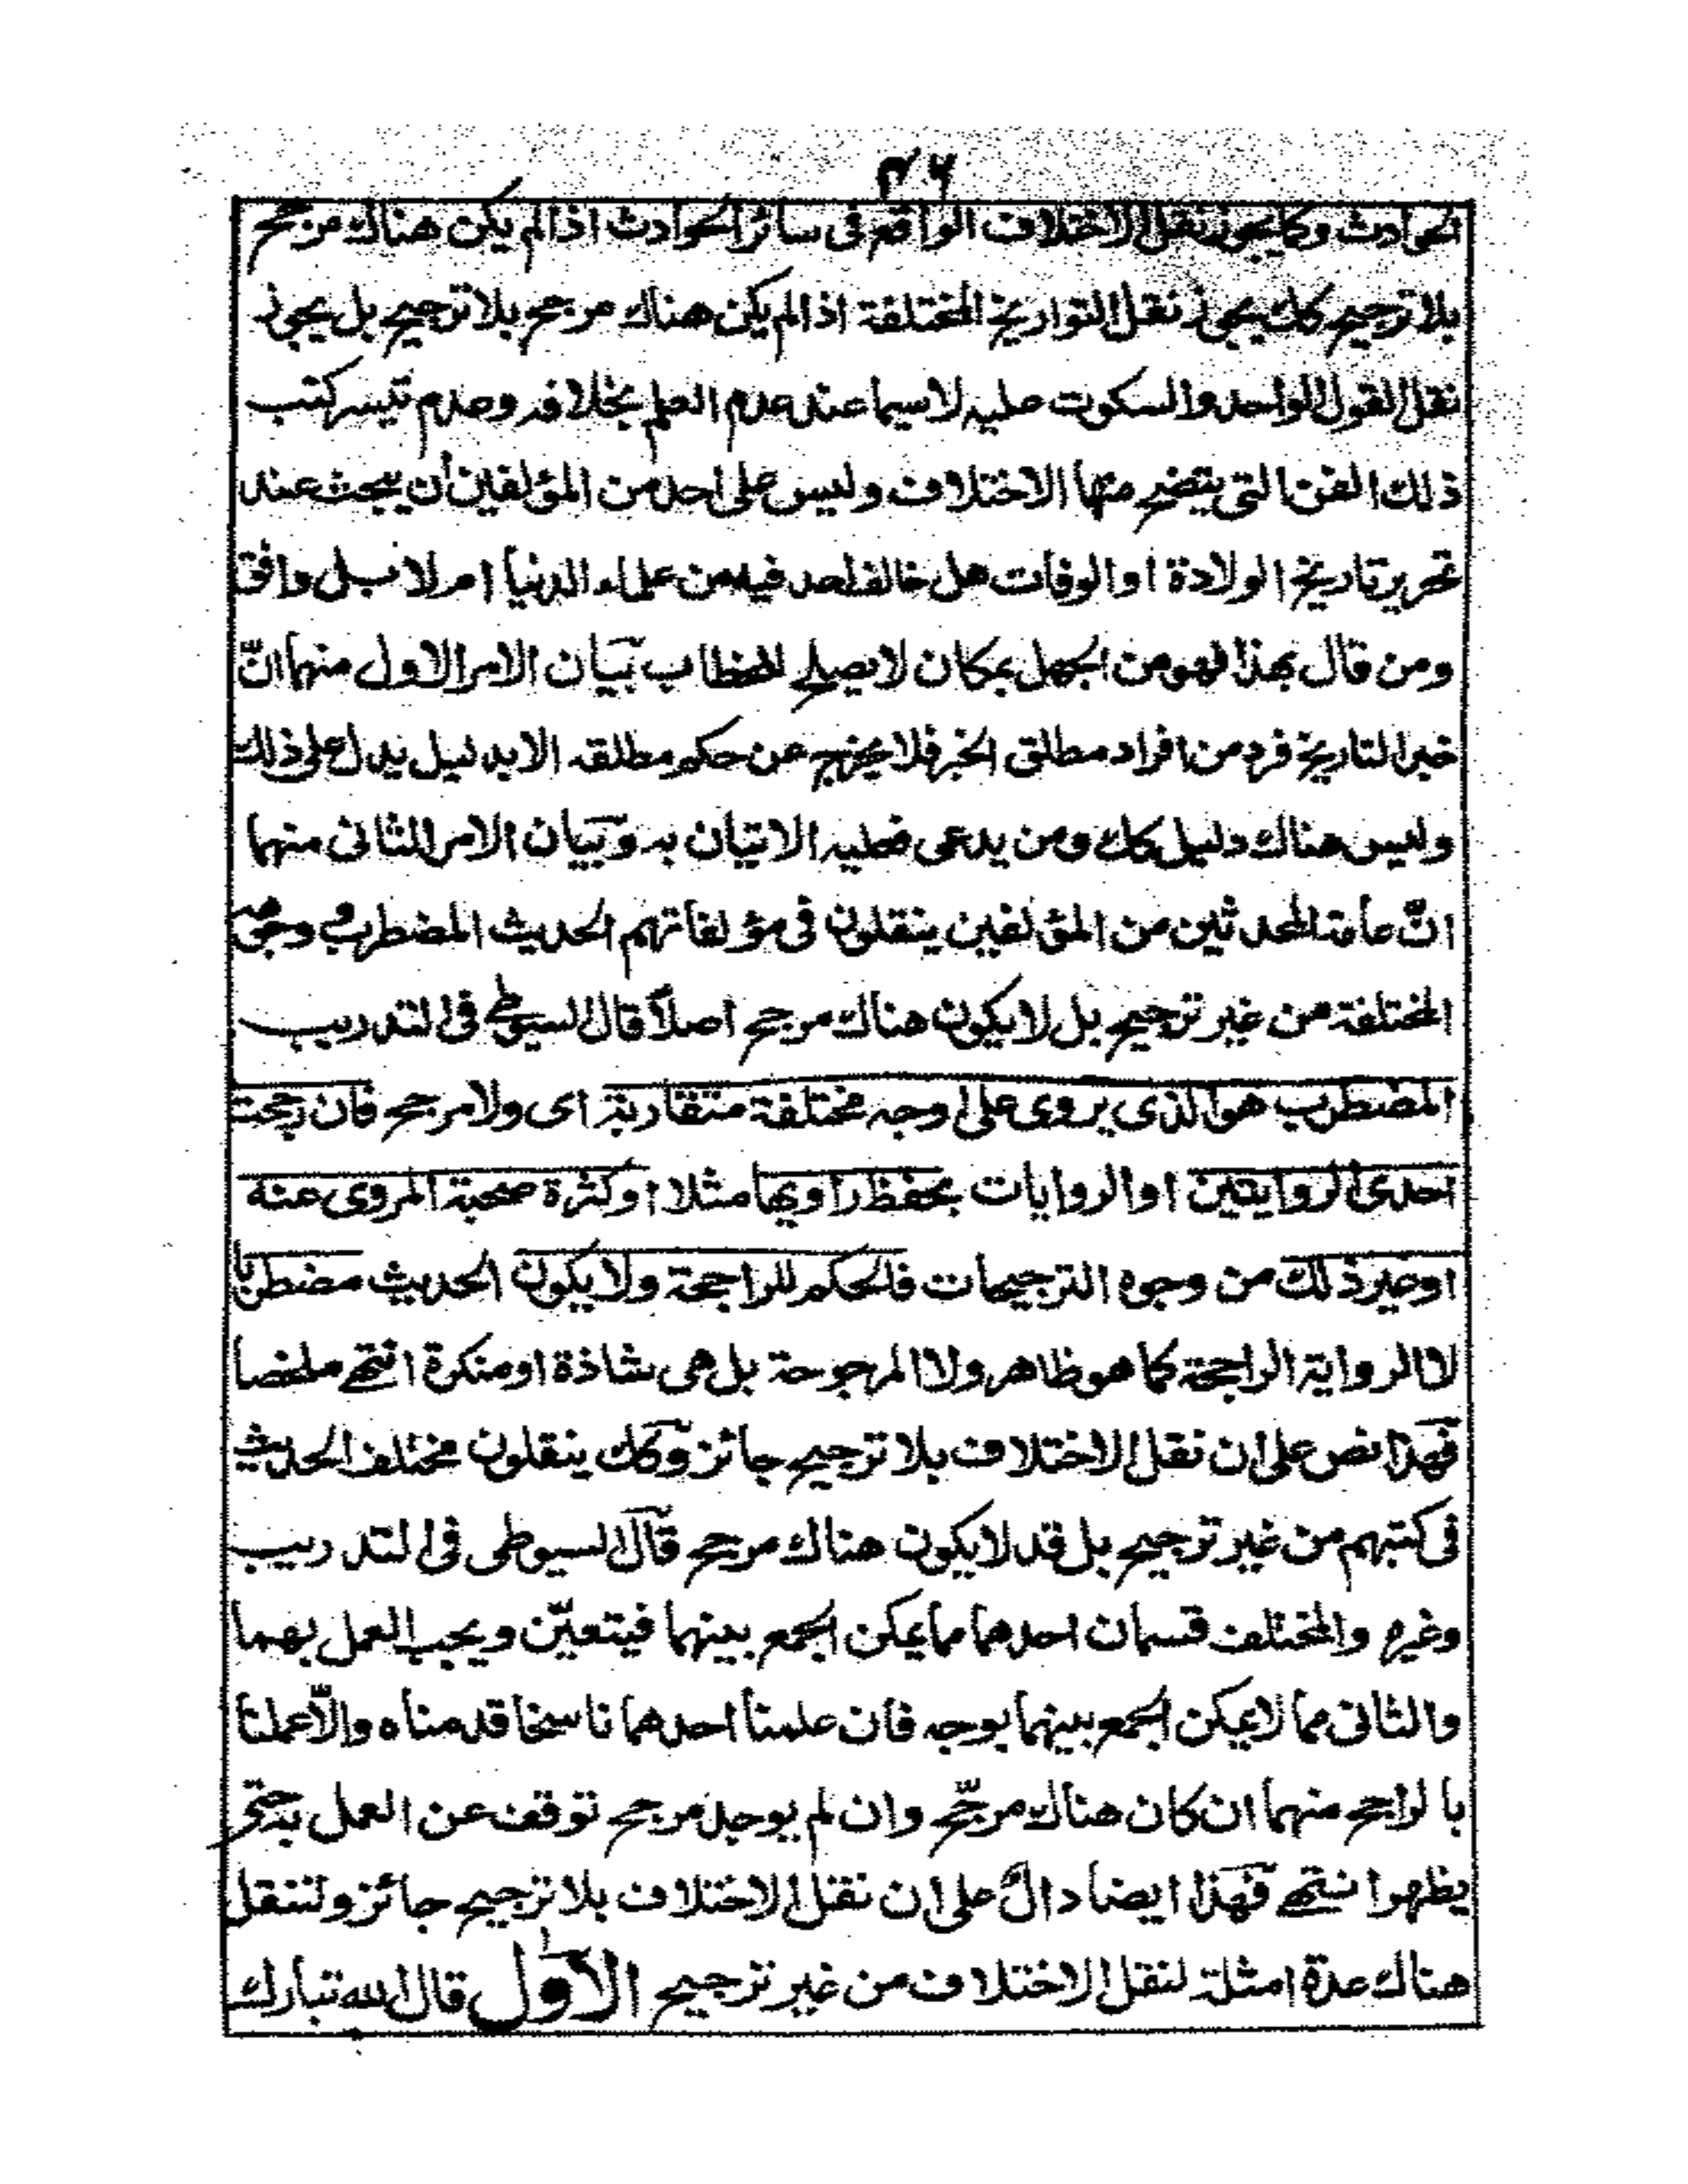 ۴۶
الحوادث وكما يجوز نقل الاختلاف الواقع فى سائر الحوادث اذا لم يكن هناك مرجح
بلا ترجيح كك يجوز نقل التواريخ المختلفة اذا لم يكن هناك مرجح بلا ترجيح بل يجوز
نقل القول الواحد والسكوت عليه لاسيما عند عدم العلم بخلافه وعدم تيسر كتب
ذلك الفن التى يتضح منها الاختلاف وليس على احد من المؤلفين أن يبحث عند
تحرير تاريخ الولادة او الوفات هل خالف احد فيه من علماء الدنيا ام لا بل وافق
ومن قال بهذا فهو من الجهل بمكان لا يصلح للخطاب بيان الامر الاول منهما انّ
خبر التاريخ فرد من افراد مطلق الخبر فلا يخرج عن حكم مطلقه الا بدليل يدل على ذلك
وليس هناك دليل كك ومن يدعى فعليه الاتيان به وبيان الامر الثانى منهما
انّ عامة المحدثين من المؤلفين ينقلون فى مؤلفاتهم الحديث المضطرب وجوهه
المختلفة من غير ترجيح بل لا يكون هناك مرجح اصلاً قال السيوطى فى التدريب
المضطرب هو الذى يروى على اوجه مختلفة متقاربة اى ولا مرجح فان رجحت
احدى الروايتين او الروايات بحفظ راويها مثلا او كثرة صحبة المروى عنه
او غير ذلك من وجوه الترجيحات فالحكم للراجحة ولا يكون الحديث مضطربا
لا الرواية الراجحة كما هو ظاهر ولا المرجوحة بل هى شاذة او منكرة انتهى ملخصا
فهذا نص على ان نقل الاختلاف بلا ترجيح جائز وكك ينقلون مختلف الحديث
فى كتبهم من غير ترجيح بل قد لا يكون هناك مرجح قال السيوطى فى التدريب
وغيره والمختلف قسمان احدهما ما يمكن الجمع بينهما فيتعيّن ويجب العمل بهما
والثانى مما لا يمكن الجمع بينهما بوجه فان علمنا احدهما ناسخا قدمناه والّا عملنا
بالراجح منهما ان كان هناك مرجّح وان لم يوجد مرجح توقف عن العمل به حتى
يظهر انتهى فهذا ايضا دالٌّ على ان نقل الاختلاف بلا ترجيح جائز ولننقل
هناك عدة امثلة لنقل الاختلاف من غير ترجيح الاول قال الله تبارك